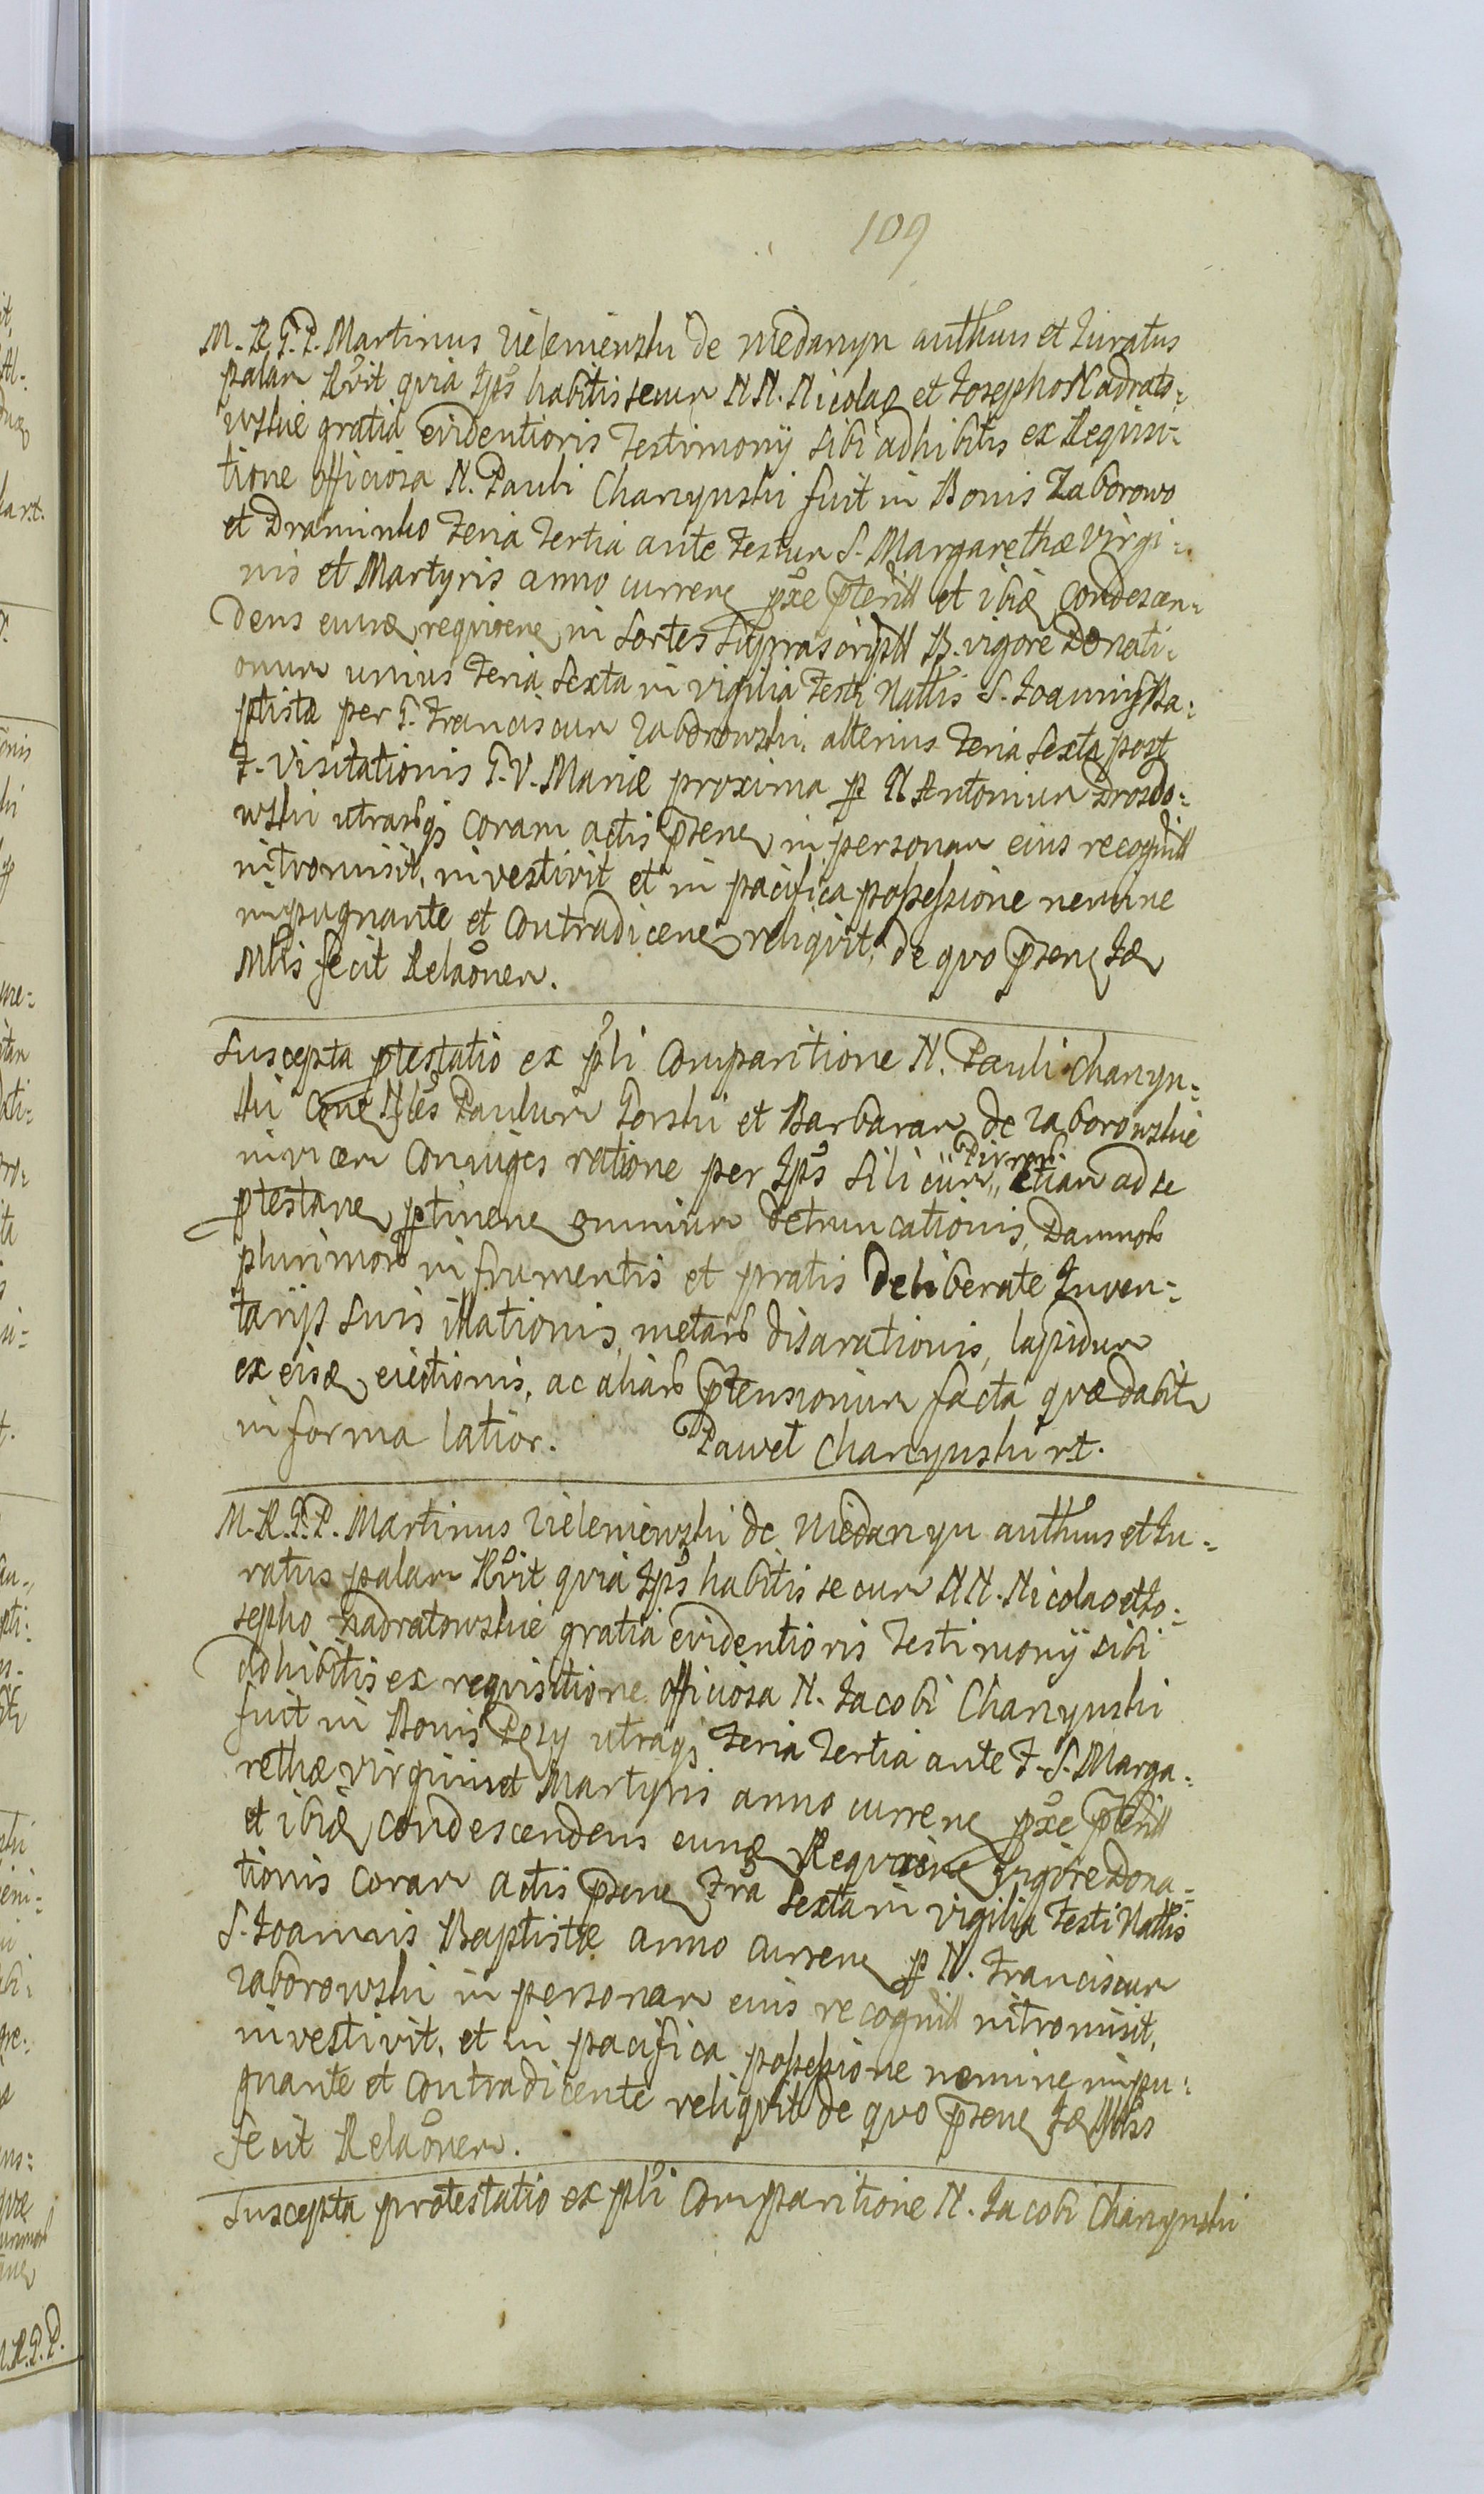 109
M. R. G. P. Martinus Zieleniewski de Niedarzyn authus et Iuratus
palam Rvit quia Ips habitis secum NN. Nicolao et Josepho Nadrato-
wskie gratia evidentioris Testimonij sibi adhibitis ex Requisi-
tione officiosa N. Pauli Charzynski fuit in Bonis Zaborowo
et Draminko Feria Tertia ante Festum S. Margarethæ Virgi-
nis et Martyris anno curren pxe pterit et ibid condescen-
dens eund requiren in Sortes Suprascript B. vigore Donati-
onum unius Feria Sexta in vigilia Festi Nattis S. Joannis Ba-
ptistæ per G. Franciscum Zaborowski, alterius Feria Sexta post
F. Visitationis G. V. Mariæ proxima p N Antonium Drozdo-
wski utrasq coram actis psen in personam eius recognit
intromisit, investivit et in pacifica possessione nemine
impugnante et Contradicen reliquit, de quo psen
Mlis fecit Relaonem.
Suscepta ptestatio ex pli Comparitione N. Pauli Charzyn-
ski Con Nles Paulum Gorski et Barbaram de Zaborowskie
invicem Coniuges ratione per Ips Silicium etiam ad se
ptestan ptinen omnium detruncationis, Damnor
plurimor in frumentis et pratis deliberate Inven-
tarijs suis illationis, metar disarationis, lapidum
ex eisd eiectionis, ac aliar ptensionum facta quæ dabit
in forma latior. Paweł Charzynski rt.
M. R. G. P. Martinus Zieleniewski de Niedarzyn authus et Iu-
ratus palam Rvit quia Ips habitis secum NN. Nicolao et Jo-
sepho Nadratowskie gratia evidentioris Testimonij sibi
adhibitis ex requisitione officiosa N. Jacobi Charzynski
fuit in Bonis Pezy utraq Feria Tertia ante F. S. Marga-
rethæ virginis et Martyris anno curren pxe pterit
et ibid condescendens eund Requiren vigore Dona-
tionis coram actis psen Fra Sexta in vigilia Festi Nattis
S. Joannis Baptistæ anno curren p N. Franciscum
Zaborowski in personam eius recognit intromisit,
investivit, et in pacifica possessione nemine impu-
gnante et Contradicente reliquit de quo psen Mlis
fecit Relaonem.
Suscepta protestatio ex pli Comparitione N. Jacobi Charzynski